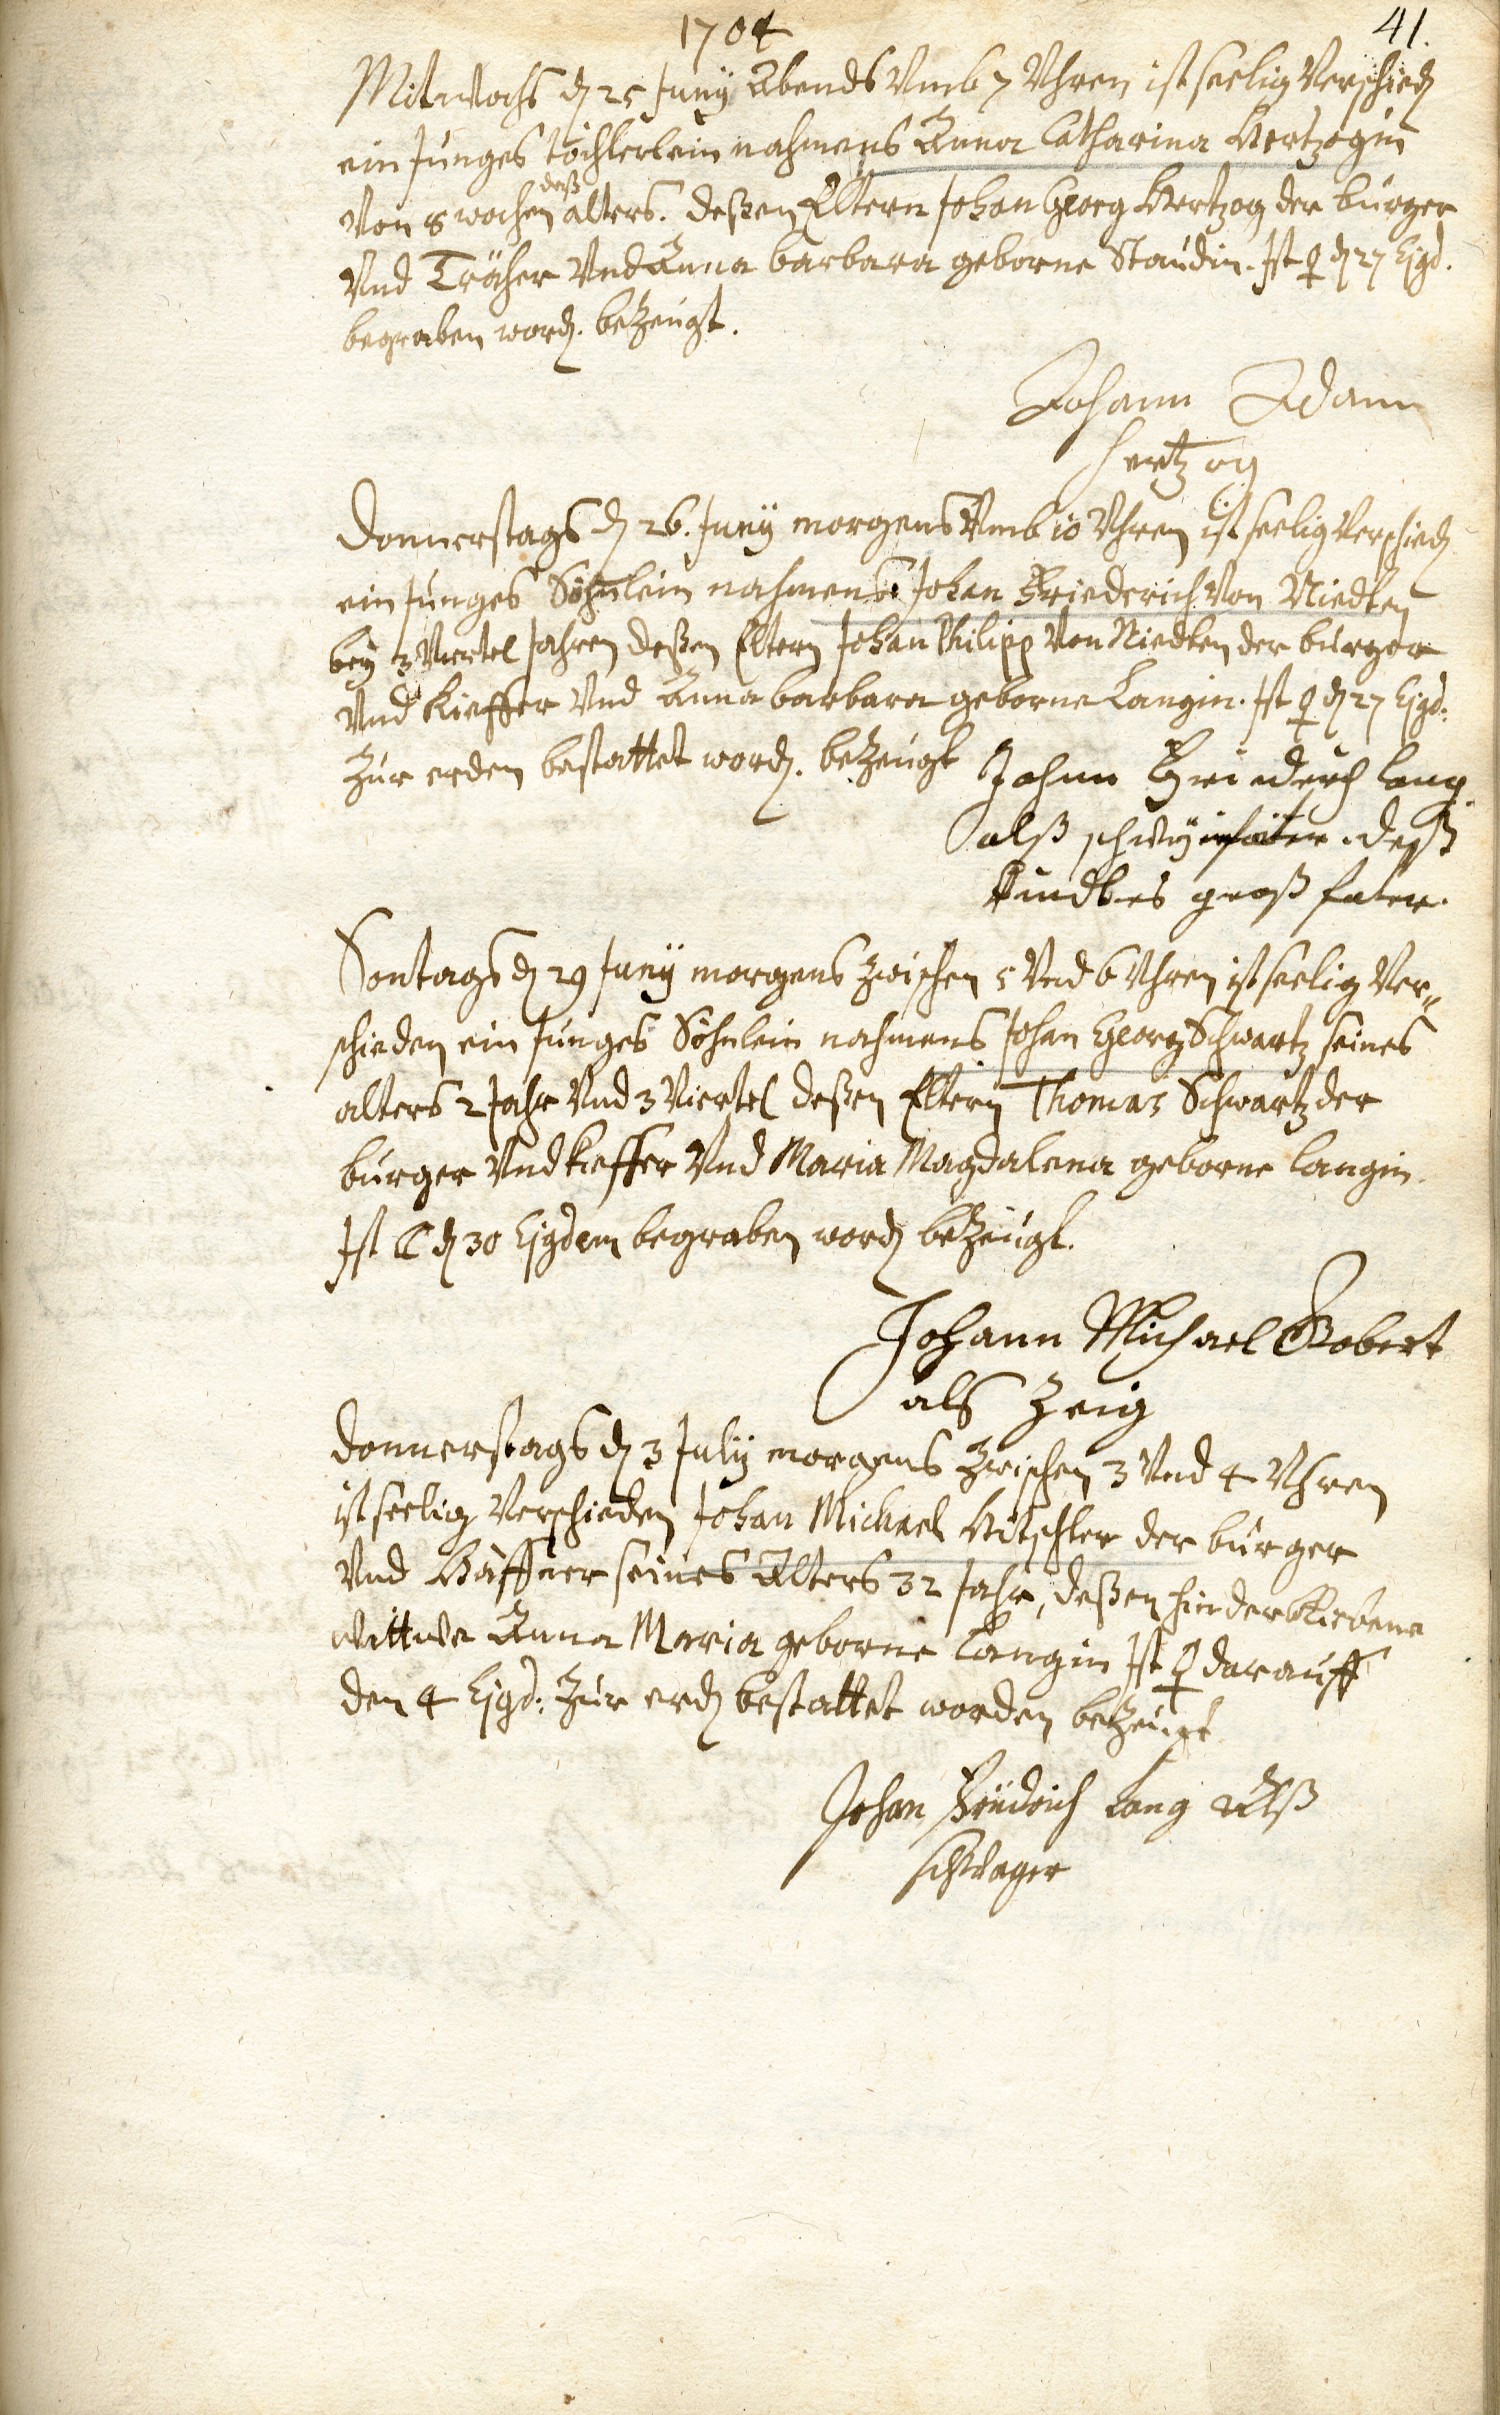 1704
41.
Mitwochs dẽ 25 Junÿ Abends Vmb 7 Vhren ist seelig Verschied
ein Junges töchterlein nahmens Anna Catharina Hertzogin
Von 8 wochen deß alters. deßen Eltern Johan Georg Hertzog der burger
Vnd Träher Vnd Anna barbara geborne Staudin. Jst ♀ dẽ 27 Ejgd.
begraben word. beZeugt.
Johann Adam
Hertzog
Donnerstags dẽ 26. Junÿ morgens Vmb 10 Vhren ist seelig Verschied
ein Junges Söhnlein nahmens Johan Friederich Von Niedten
beÿ 3 Viertel Jahren deßen Eltern Johan Philipp Von Niedten der burger
Vnd Kieffer Vnd Anna barbara geborne Langin. Jst ♀ dẽ 27 Ejgd.
Zur erden bestattet word. beZeugt Johan Friederich Lang
alß deß
Kindtes groß fater.
Sontags dẽ 29 Junÿ morgens Zwischen 5 Vnd 6 Vhren ist seelig Ver„
schieden ein Junges Söhnlein nahmens Johan Georg Schwartz seines
alters 2 Jahr Vnd 3 Viertel deßen Eltern Thomas Schwartz der
burger Vnd Kieffer Vnd Maria Magdalena geborne Langin.
Jst ☾ dẽ 30 Ejgdem begraben word beZeugt.
Johann Michael Gobert
als Zeig
Donnerstags dẽ 3 Julÿ morgens Zwischen 3 Vnd 4 Vhren
ist seelig Verschieden Johan Michael Hütschler der burger
Vnd Haffner seines Alters 32 Jahr, deßen hinderbliebene
wittwe Anna Maria geborne Langin Jst ♀ darauff
den 4 Ejgd: Zur erd bestattet worden beZeugt
Johan Fridrich Lang Alß
schwager